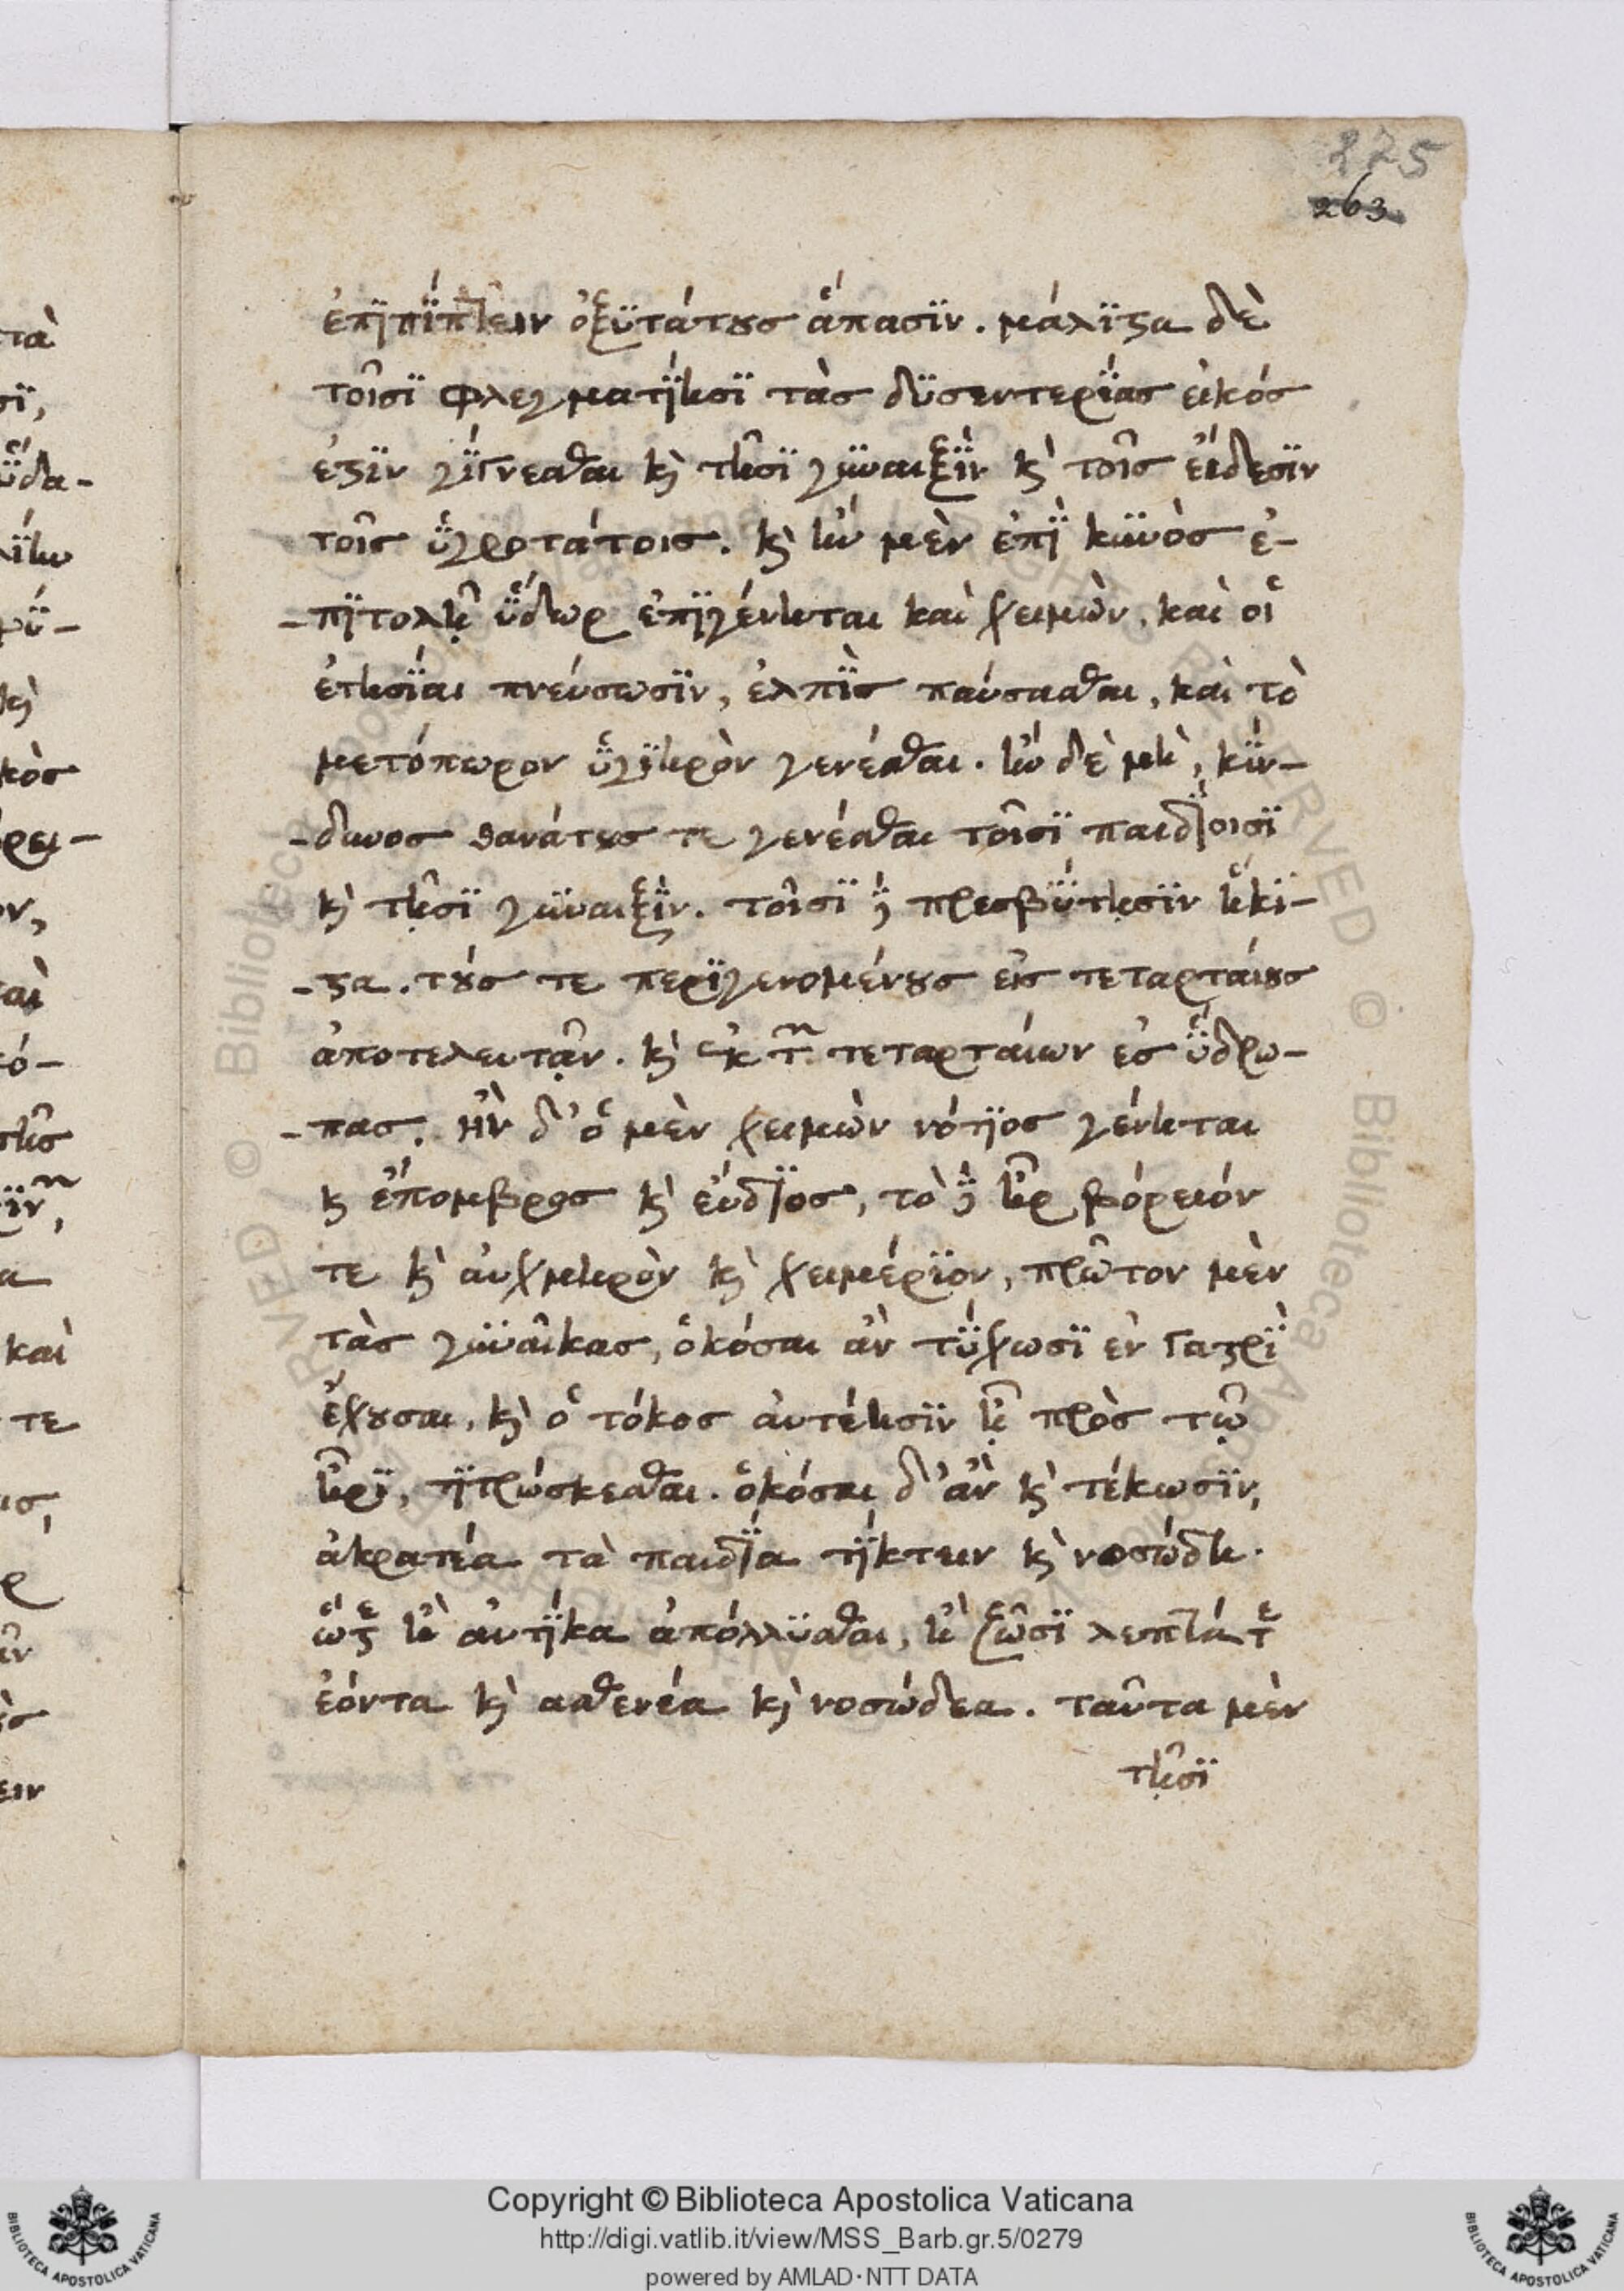 275
263
ἐπϊπΐπτειν ὀξϋτάτους ἅπασϊν. μάλϊστα δὲ
τοῖσϊ φλεγματΐησϊ τὰς δϋσεντερΐας εἰκός
ἐστϊν γΐγνεσθαι κὶ τῆσϊ γυναιξῒν κὶ τοῖς εἴδεσϊν
τοῖς ὑγροτάτοις. κὶ ἢν μὲν ἐπῒ κϋνὸς ἐ-
-πϊτολῇ ὕδωρ ἐπϊγένηται καὶ χειμὼν, καὶ οἱ
ἐτησΐαι πνεύσωσϊν, ἐλπῒς παύσασθαι, καὶ τὸ
μετόπωρον ὑγϊηρὸν γενέσθαι. ἢν δὲ μὴ, κΐν-
-δυνος θανάτους τε γενέσθαι τοῖσϊ παιδΐοισϊ
κὶ τῇσϊ γυναιξῒν. τοῖσϊ δὲ πρεσβΰτῃσϊν ἥκϊ-
-στα. τούς τε περϊγενομένους εἰς τεταρταίους
ἀποτελευτᾷν. κὶ ἐκ τῶν τεταρταίων ἐς ὕδρω-
-πας. ἢν δ' ὁ μὲν χειμὼν νότϊος γένηται
κ ἔπομβρος κὶ εὔδϊος, τὸ δὲ ἦρ βόρειόν
τε κὶ αὐχμηρὸν κὶ χειμέρϊον, πρῶτον μὲν
τὰς γυναῖκας, ὁκόσαι ἂν τΰχωσϊ ἐν γαστρῒ
ἔχουσαι, κὶ ὁ τόκος αὐτέησϊν ᾖ πρὸς τῷ
ἦρϊ, τϊτρώσκεσθαι. ὁκόσαι δ' ἂν κὶ τέκωσϊν,
ἀκρατέα τὰ παιδΐα τΐκτειν κὶ νοσώδη.
ὥστε ἢ αὐτΐκα ἀπόλλυσθαι, ἢ ζῶσϊ λεπτά τε
ἐόντα κὶ ἀσθενέα κὶ νοσώδεα. ταῦτα μὲν
τῇσϊ
Copyright © Biblioteca Apostolica Vaticana
http://digi.vatlib.it/view/MSS_Barb.gr.5/0279
powered by AMLAD·NTT DATA